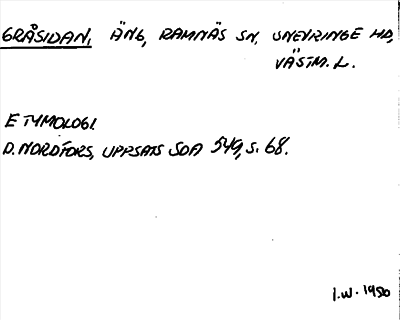 GRÅSIDAN, ÄNG, RAMNÄS SN, SNEVRINGE HD,
VÄSTM. L.
ETYMOLOGI
D. NORDFORS, UPPSATS SOA 549, S. 68.
I.W. 1950